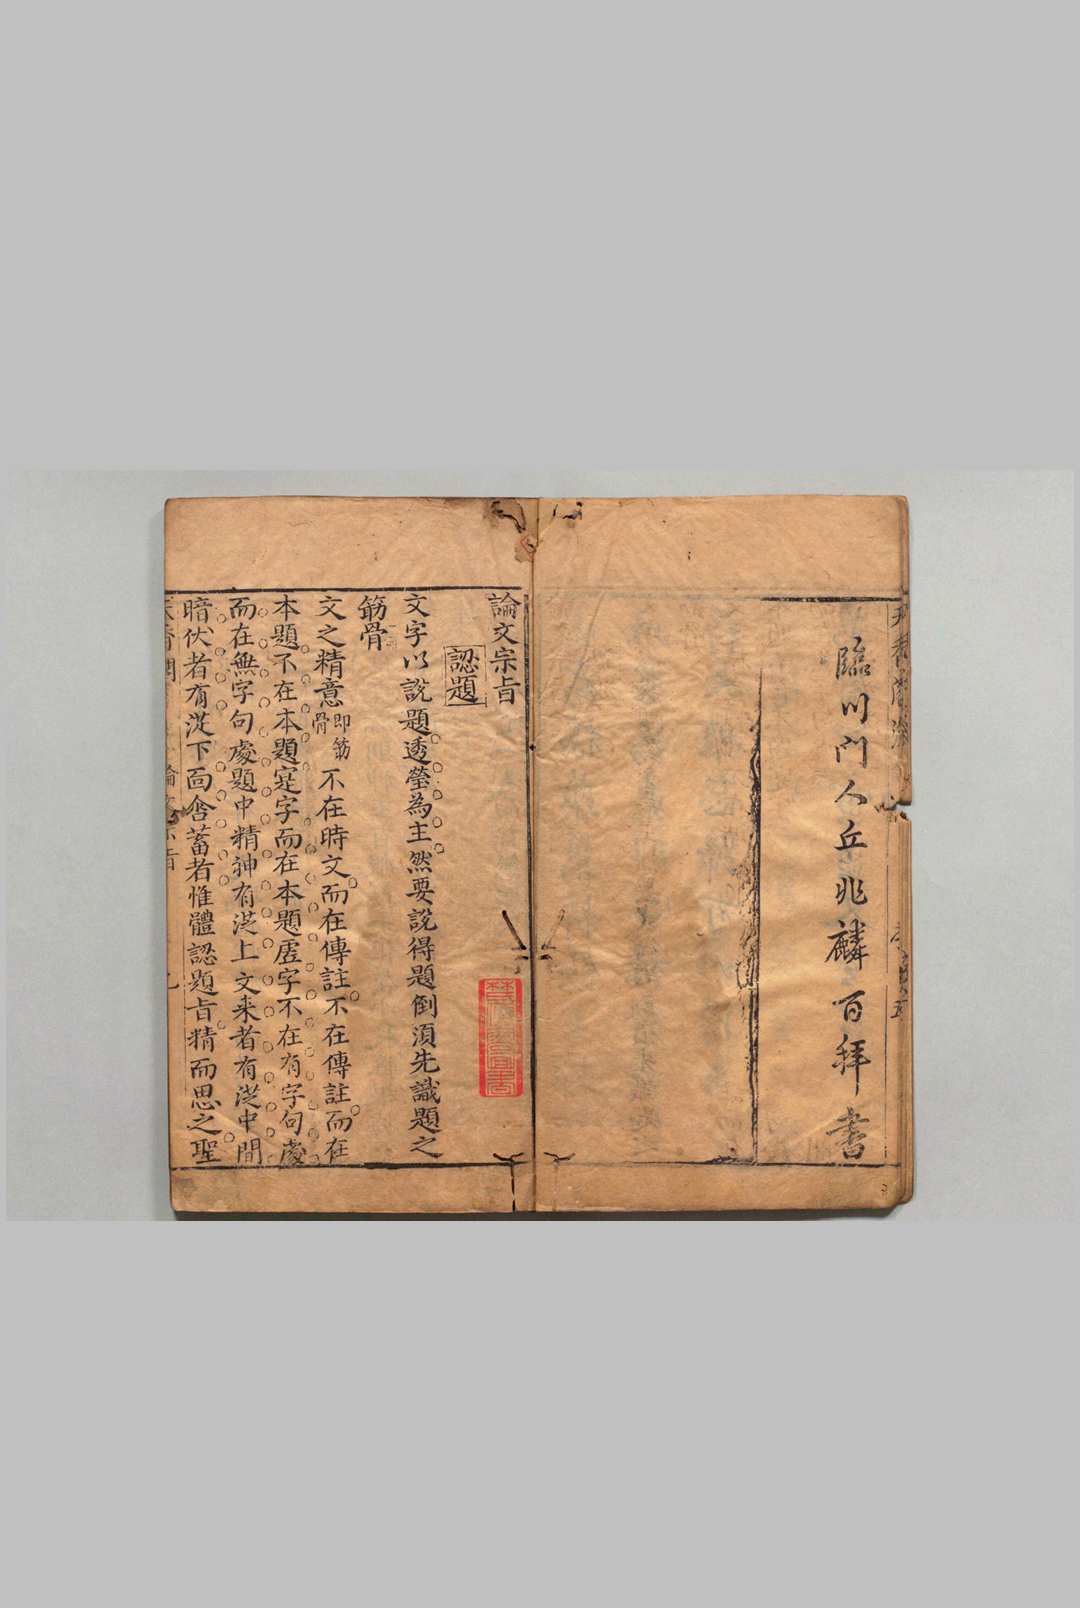 臨川門人丘兆麟百拜書
論文宗旨
認題
文字以說題透瑩為主然要說得題倒須先識題之
筋骨
文之精意即筋骨不在時文而在傳註不在傳註而在
本題不在本題寔字而在本題虛字不在有字句處
而在無字句處題中精神有從上文來者有從中間
暗伏者有從下面含蓄者惟體認題旨精而思之聖